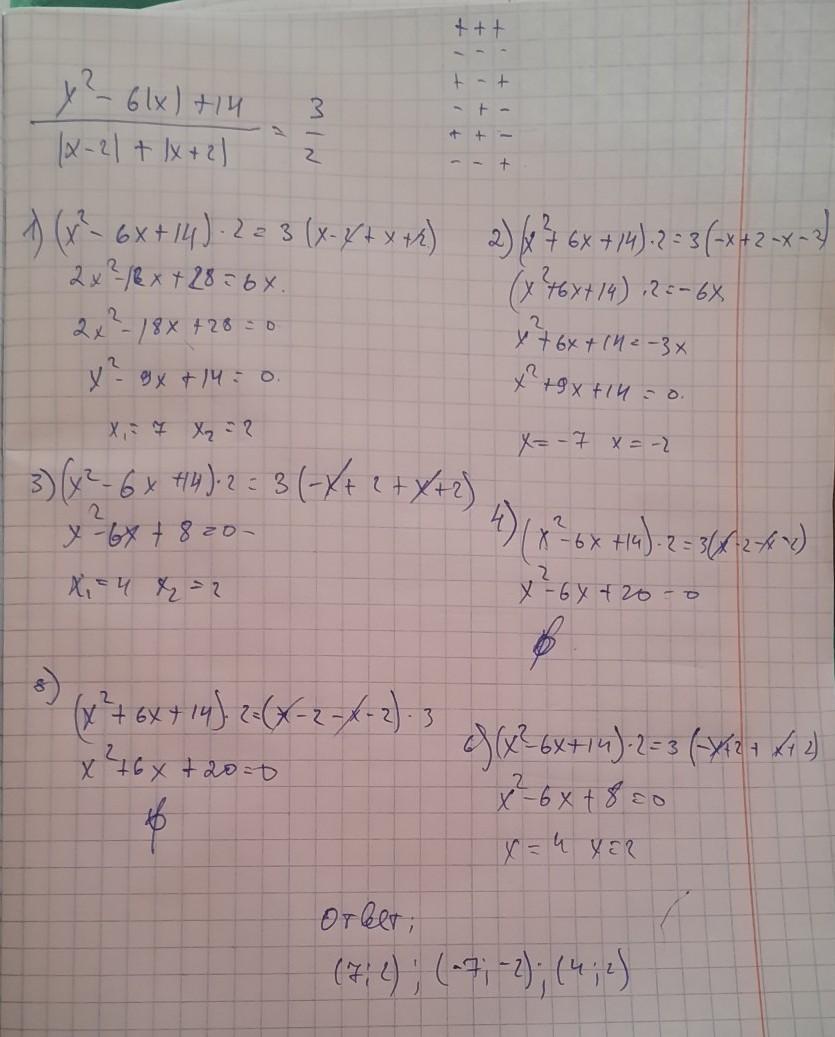 + + +
- - -
+ - +
- + -
+ + -
- - +
x² - 6|x| + 14
= 3/2
|x-2| + |x+2|
1) (x² - 6x + 14) · 2 = 3 (x - 2 + x + 2)
2x² - 12x + 28 = 6x.
2x² - 18x + 28 = 0
x² - 9x + 14 = 0.
x₁ = 7 x₂ = 2
2) (x² + 6x + 14) · 2 = 3 (-x + 2 - x - 2)
(x² + 6x + 14) · 2 = -6x
x² + 6x + 14 = -3x
x² + 9x + 14 = 0.
x = -7 x = -2
3) (x² - 6x + 14) · 2 = 3 (-x + 2 + x + 2)
x² - 6x + 8 = 0 -
x₁ = 4 x₂ = 2
4) (x² - 6x + 14) · 2 = 3 (x - 2 - x - 2)
x² - 6x + 20 = 0
ϕ
5) (x² + 6x + 14) · 2 = (x - 2 - x - 2) · 3
x² + 6x + 20 = 0
ϕ
6) (x² - 6x + 14) · 2 = 3 (-x + 2 + x + 2)
x² - 6x + 8 = 0
x = 4 x = 2
Ответ;
(7; 2) ; (-7; -2) ; (4; 2)